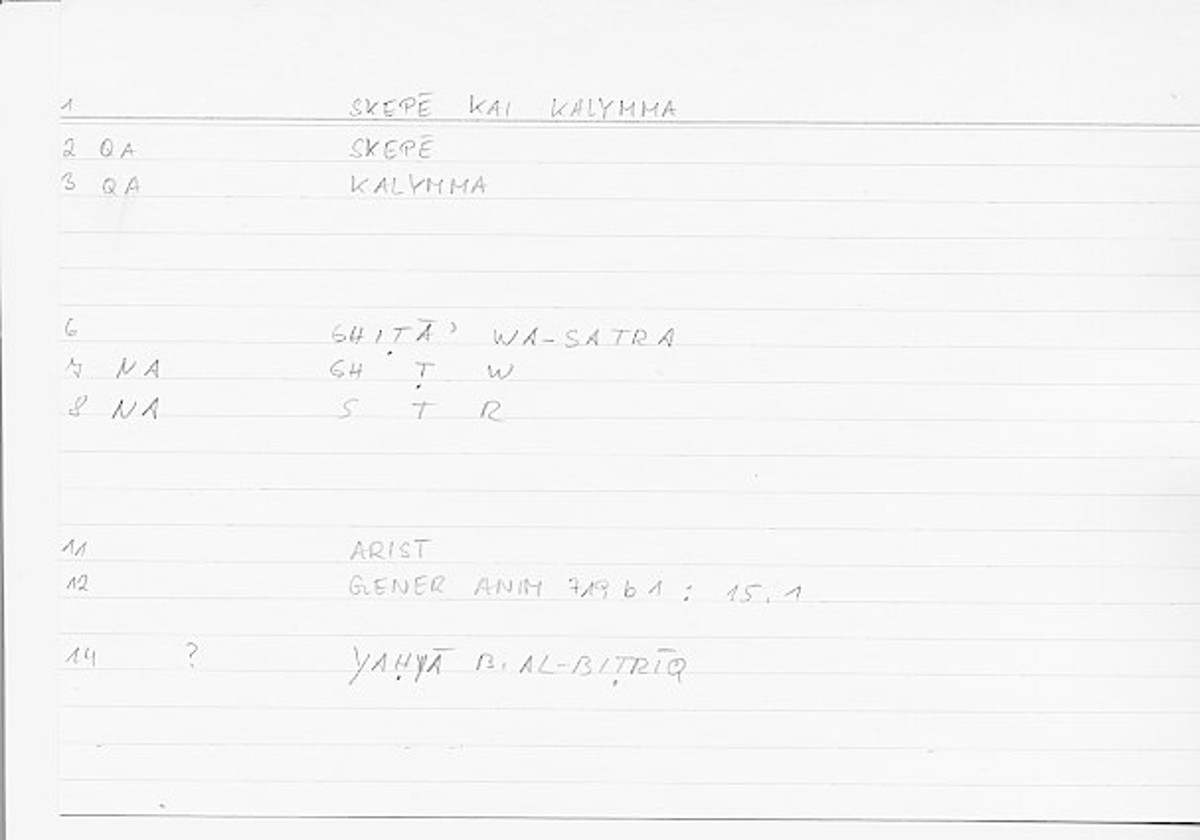 1 SKEPĒ KAI KALYMMA
2 QA SKEPĒ
3 QA KALYMMA
6 GHIṬĀʾ WA-SATRA
7 NA GH Ṭ W
8 NA S T R
11 ARIST
12 GENER ANIM 719 b 1 : 15.1
14 ? YAḤYĀ B. AL-BIṬRĪQ